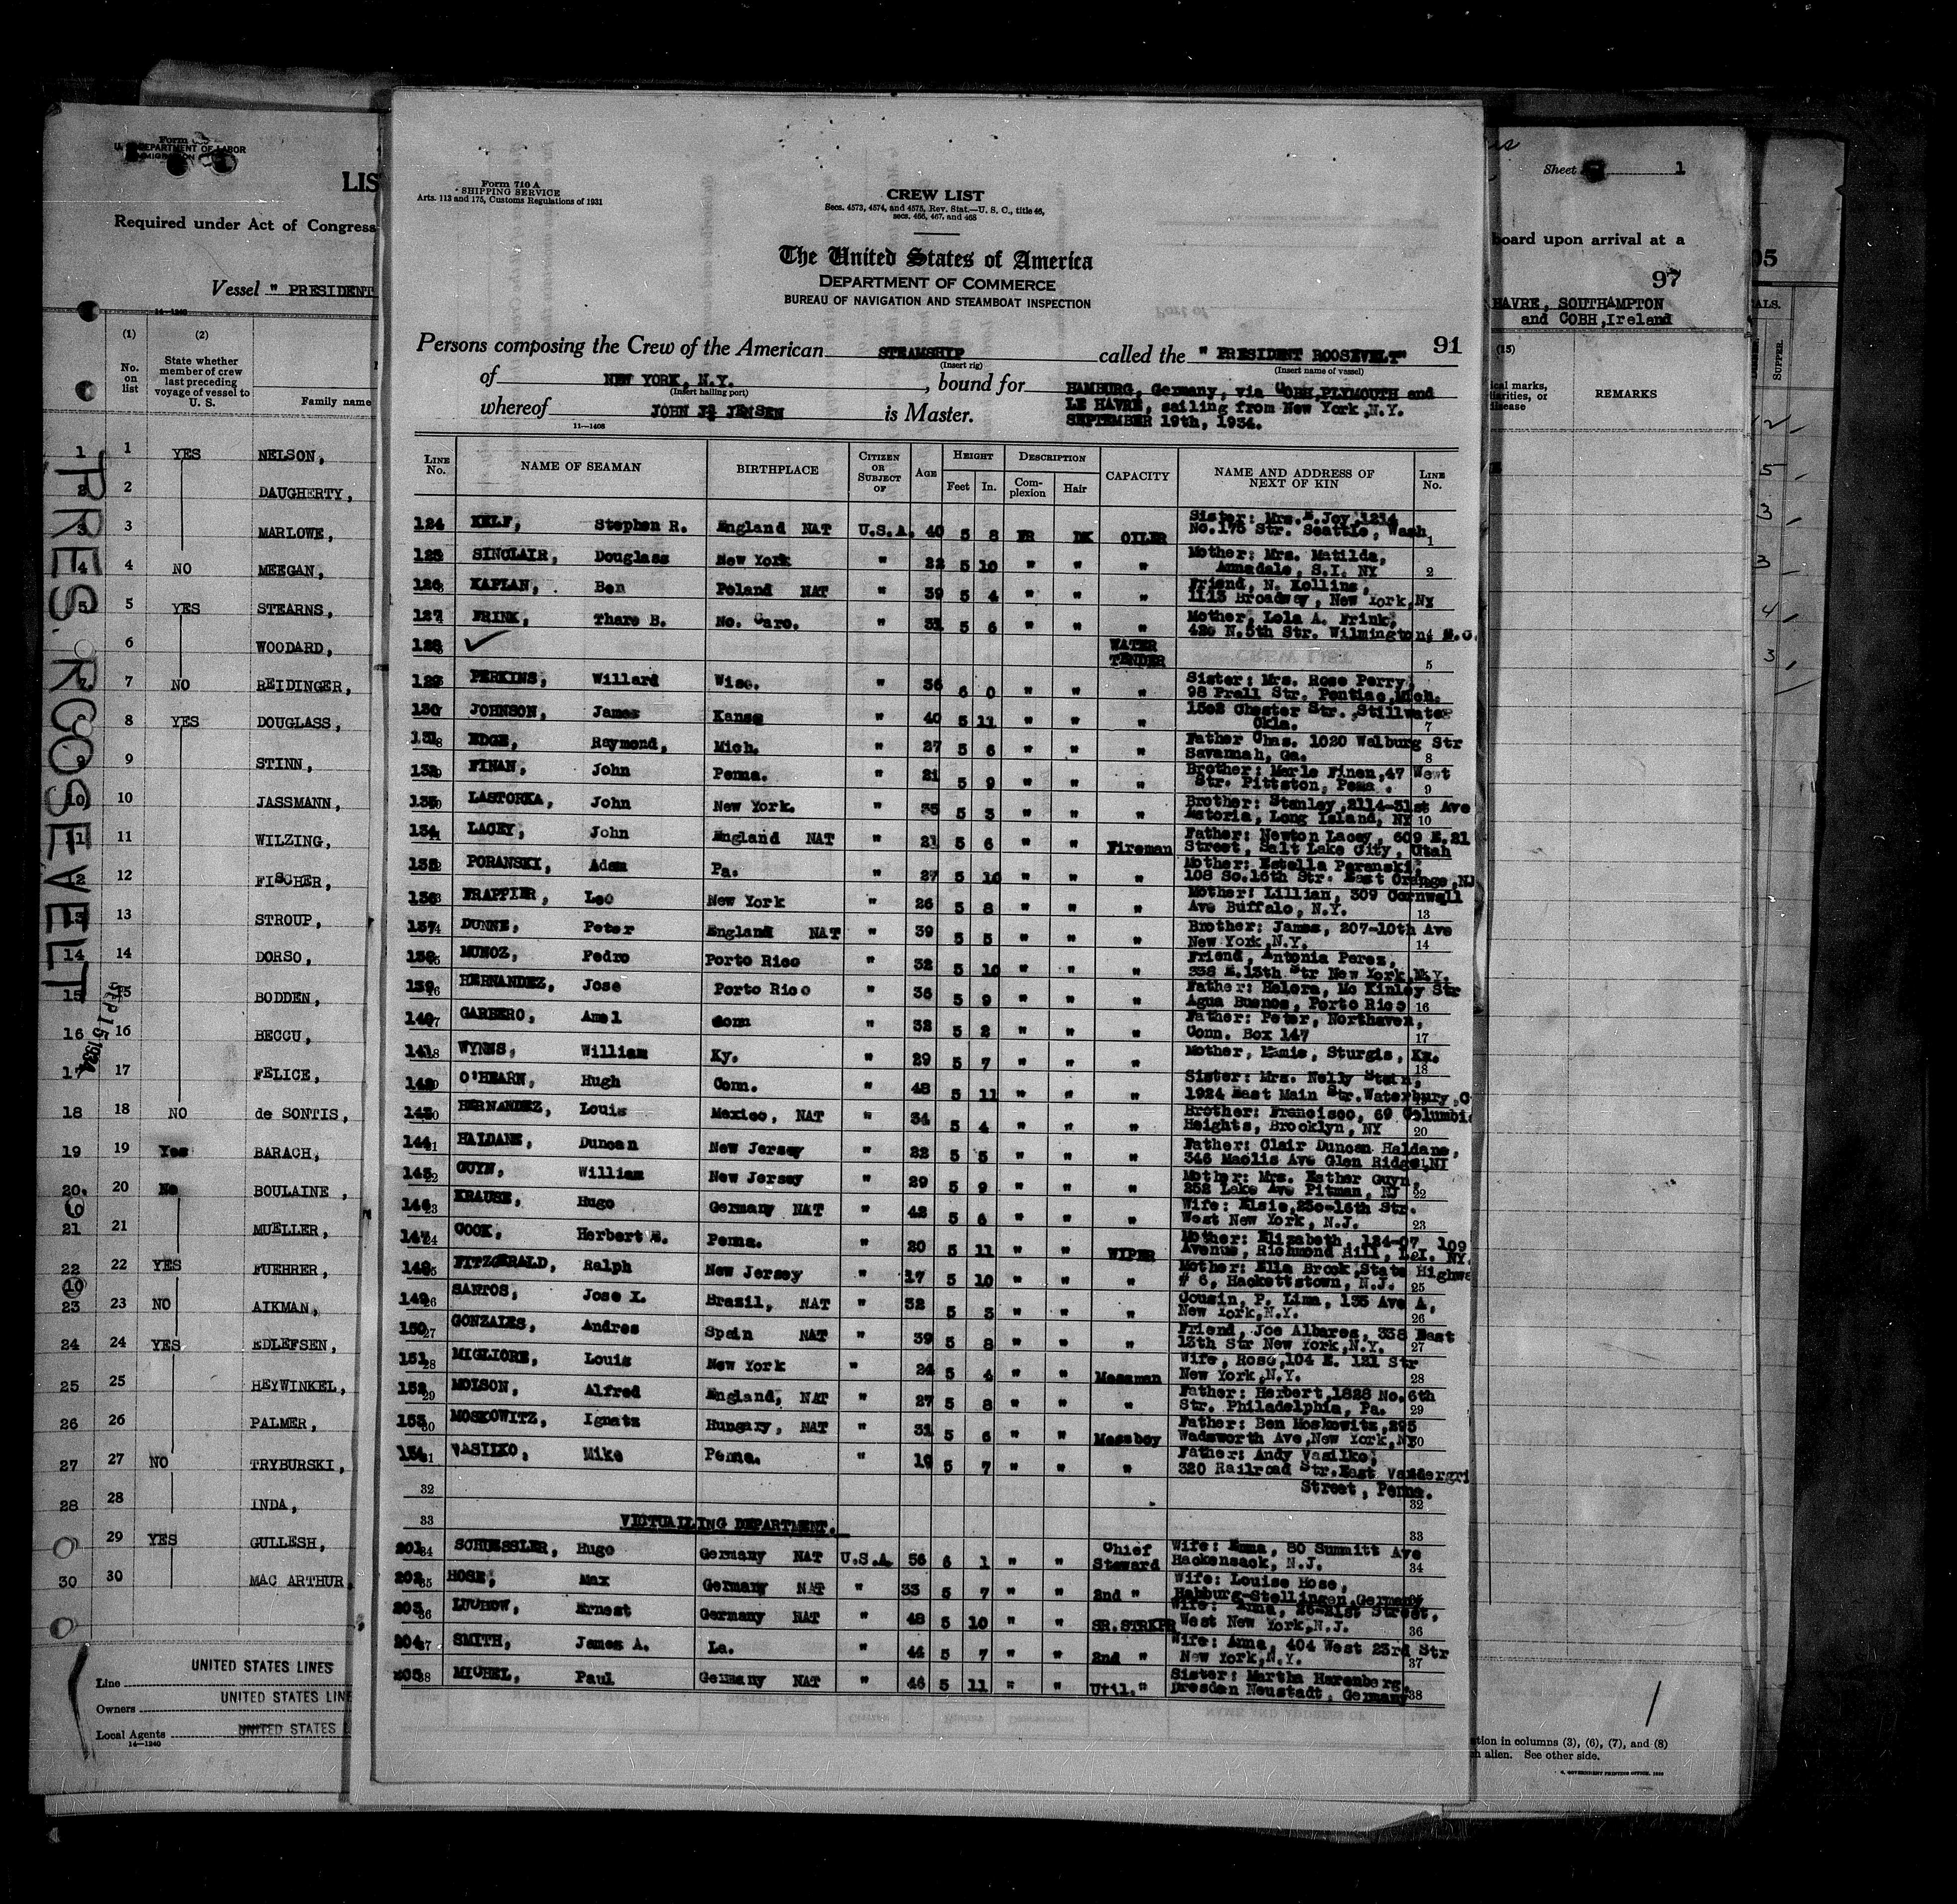 Form
U. S. DEPARTMENT OF LABOR
LIS
Required under Act of Congress
Vessel " PRESIDENT
14—1240
(1) (2)
No. on list
State whether member of crew last preceding voyage of vessel to U. S.
Family name
1 1 YES NELSON,
2 2 DAUGHERTY,
3 3 MARLOWE,
4 4 NO MEEGAN,
5 5 YES STEARNS,
6 6 WOODARD,
7 7 NO REIDINGER,
8 8 YES DOUGLASS,
9 9 STINN,
10 10 JASSMANN,
11 11 WILZING,
12 12 FISCHER,
13 13 STROUP,
14 14 DORSO,
15 15 BODDEN,
16 16 BECCU,
17 17 FELICE,
18 18 NO de SONTIS,
19 19 Yes BARACH,
20. 20 No BOULAINE,
21 21 MUELLER,
22 22 YES FUEHRER,
23 23 NO AIKMAN,
24 24 YES EDLEFSEN,
25 25 HEYWINKEL,
26 26 PALMER,
27 27 NO TRYBURSKI,
28 28 INDA,
29 YES GULLESH,
30 30 MAC ARTHUR,
PRES. ROOSEVELT
SEP 15 1934
Line UNITED STATES LINES
Owners UNITED STATES LINE
Local Agents UNITED STATES L
14—1240
Form 710 A
SHIPPING SERVICE
Arts. 113 and 175, Customs Regulations of 1931
CREW LIST
Secs. 4573, 4574, and 4575, Rev. Stat.—U. S. C., title 46,
secs. 466, 467, and 468
The United States of America
DEPARTMENT OF COMMERCE
BUREAU OF NAVIGATION AND STEAMBOAT INSPECTION
Persons composing the Crew of the American STEAMSHYP called the " PRESIDENT ROOSEVELT" 91
(Insert rig) (Insert name of vessel)
of NEW YORK, N.Y. , bound for HAMBURG, Germany, via COBH,PLYMOUTH and
(Insert hailing port)
whereof JOHN J. JENSEN is Master. LE HAVRE, sailing from New York,N.Y.
SEPTEMBER 19th, 1934.
11—1408
LINE No. NAME OF SEAMAN BIRTHPLACE CITIZEN OR SUBJECT OF AGE HEIGHT Feet In. DESCRIPTION Complexion Hair CAPACITY NAME AND ADDRESS OF NEXT OF KIN LINE No.
124 KELF, Stephen R. England NAT U.S.A. 40 5 8 FR DK OILER Sister: Mrs. E.Joy,1214 No.175 Str. Seattle, Wash 1
125 SINCLAIR, Douglass New York " 22 5 10 " " " Mother: Mrs. Matilda, Annadale, S.I. NY 2
126 KAPLAN, Ben Poland NAT " 39 5 4 " " " Friend, N. Kollins, 1113 Broadway, New York,NY
127 FRINK, Tharo B. No. Caro. " 31 5 6 " " " Mother, Lela A. Frink, 420 N.5th Str. Wilmington, N.C.
128 ✓ WATER TENDER 5
129 PERKINS, Willard Wisc. " 36 6 0 " " " Sister: Mrs. Rose Perry, 98 Prall Str. Pontiac,Mich.
130 JOHNSON, James Kansa " 40 5 11 " " " 1302 Chester Str. Stillwater Okla. 7
131 EDGE, Raymond, Mich. " 27 5 6 " " " Father Chas. 1020 Walburg Str Savannah, Ga. 8
132 FINAN, John Penna. " 21 5 9 " " " Brother: Merle Finen,47 West Str. Pittston, Penna. 9
133 LASTORKA, John New York. " 35 5 3 " " " Brother: Stanley,2114-31st Ave Astoria, Long Island, NY 10
134 LACEY, John England NAT " 21 5 6 " " Fireman Father: Newton Lacey, 609 E.21 Street, Salt Lake City, Utah
135 PORANSKI, Adam Pa. " 27 5 10 " " " Mother: Estella Poranski, 108 So.16th Str. East Orange,NJ
136 FRAPPIER, Leo New York " 26 5 8 " " " Mother: Lillian, 309 Cornwall Ave Buffalo, N.Y. 13
137 DUNNE, Peter England NAT " 39 5 5 " " " Brother: James, 207-10th Ave New York,N.Y. 14
138 MUNOZ, Pedro Porto Rico " 32 5 10 " " " Friend, Antonia Perez, 338 E.13th Str New York,N.Y.
139 HERNANDEZ, Jose Porto Rico " 36 5 9 " " " Father: Helora, Mc Kinley Str Agua Buenos, Porto Rico 16
140 GARBERO, Amel Conn " 32 5 2 " " " Father: Peter, Northaven, Conn. Box 147 17
141 WYNNS, William Ky. " 29 5 7 " " " Mother, Mamie, Sturgis, Ky. 18
142 O'HEARN, Hugh Conn. " 48 5 11 " " " Sister: Mrs. Nelly Stein, 1924 East Main Str.Waterbury,C
143 HERNANDEZ, Louis Mexico, NAT " 34 5 4 " " " Brother: Francisco, 69 Columbia Heights, Brooklyn, NY 20
144 HALDANE, Duncan New Jersey " 22 5 5 " " " Father: Clair Duncan Haldane, 346 Maolis Ave Glen Ridge,NJ
145 GUYN, William New Jersey " 29 5 9 " " " Mother: Mrs. Esther Guyn, 252 Lake Ave Pitman, NJ 22
146 KRAUSE, Hugo Germany NAT " 42 5 6 " " " Wife: Elsie,230-16th Str. West New York, N.J. 23
147 COOK, Herbert E. Penna. " 20 5 11 " " WIPER Mother: Elizabeth, 124-07 109 Avenue, Richmond Hill, L.I. NY.
148 FITZGERALD, Ralph New Jersey " 17 5 10 " " " Mother: Ella Brook,State Highwa # 6, Hackettstown, N.J. 25
149 SANTOS, Jose I. Brazil, NAT " 32 5 3 " " " Cousin, P. Lima, 135 Ave A, New York,N.Y. 26
150 GONZALES, Andres Spain NAT " 39 5 8 " " " Friend, Joe Albares, 338 East 13th Str New York,N.Y. 27
151 MIGLIORE, Louis New York " 24 5 4 " " Messman Wife, Rose,104 E. 121 Str New York,N.Y. 28
152 MOLSON, Alfred England, NAT " 27 5 8 " " " Father: Herbert,1828 No.6th Str. Philadelphia, Pa. 29
153 MOSKOWITZ, Ignatz Hungary, NAT " 31 5 6 " " Messboy Father: Ben Moskowitz,295 Wadsworth Ave,New York,NY
154 VASILKO, Mike Penna. " 19 5 7 " " " Father: Andy Vasilko, 320 Railroad Str.East Vandergri
32 Street, Penna. 32
33 VICTUAILING DEPARTMENT. 33
201 SCHUESSLER, Hugo Germany NAT U.S.A. 56 6 1 " " Chief Steward Wife: Emma, 80 Summitt Ave Hackensack, N.J. 34
202 HOSE, Max Germany NAT " 33 5 7 " " 2nd " Wife: Louise Hose, Hamburg-Stellingen,Germany
203 LUUHOW, Ernest Germany NAT " 48 5 10 " " SR.STRKPR Wife: Anna, 26-21st Street, West New York,N.J. 36
204 SMITH, James A. La. " 44 5 7 " " 2nd " Wife: Anna, 404 West 23rd Str New York,N.Y. 37
205 MICHEL, Paul Germany NAT " 46 5 11 " " Util." Sister: Martha Harenberg, Dresden Neustadt, Germany 38
Sheet 1
board upon arrival at a
97
HAVRE, SOUTHAMPTON
and COBH,Ireland
(15)
REMARKS
tion in columns (3), (6), (7), and (8)
h alien. See other side.
05
ALS.
SUPPER.